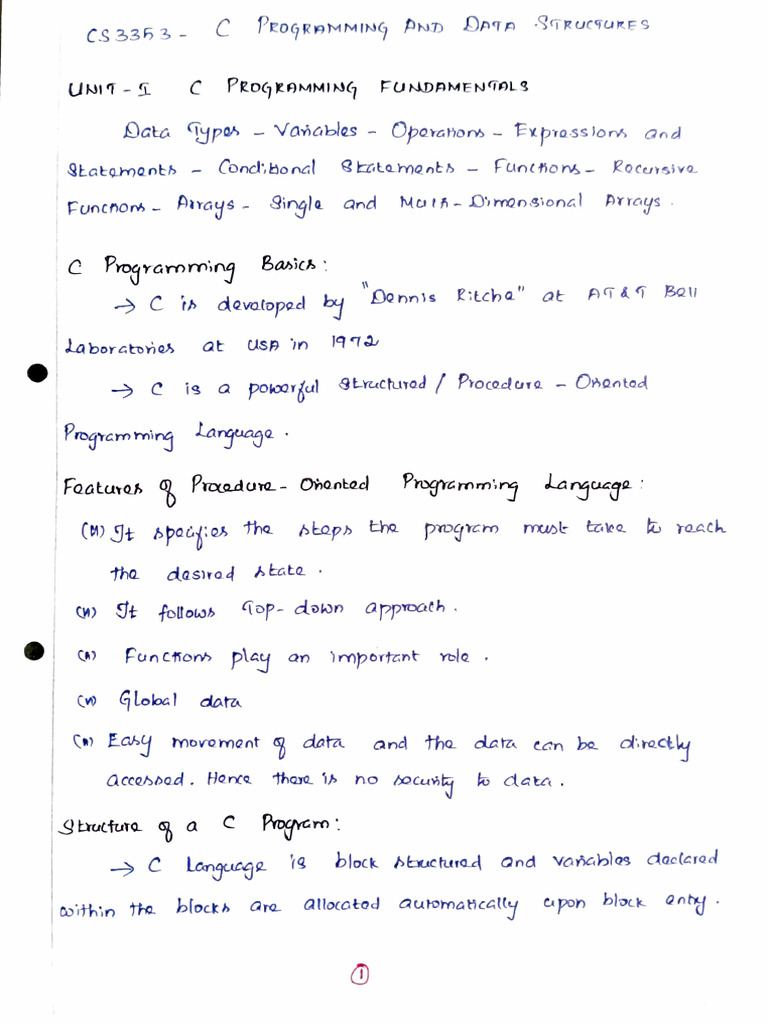 CS3353 - C PROGRAMMING AND DATA STRUCTURES
UNIT - I C PROGRAMMING FUNDAMENTALS
Data Types - Variables - Operations - Expressions and
Statements - Conditional Statements - Functions - Recursive
Functions - Arrays - Single and Multi-Dimensional Arrays.
C Programming Basics:
→ C is developed by "Dennis Ritche" at AT&T Bell
Laboratories at USA in 1972
→ C is a powerful Structured / Procedure - Oriented
Programming Language.
Features of Procedure - Oriented Programming Language:
It specifies the steps the program must take to reach
the desired state.
It follows Top-down approach.
Functions play an important role.
Global data
Easy movement of data and the data can be directly
accessed. Hence there is no security to data.
Structure of a C Program:
→ C Language is block structured and variables declared
within the blocks are allocated automatically upon block entry.
1